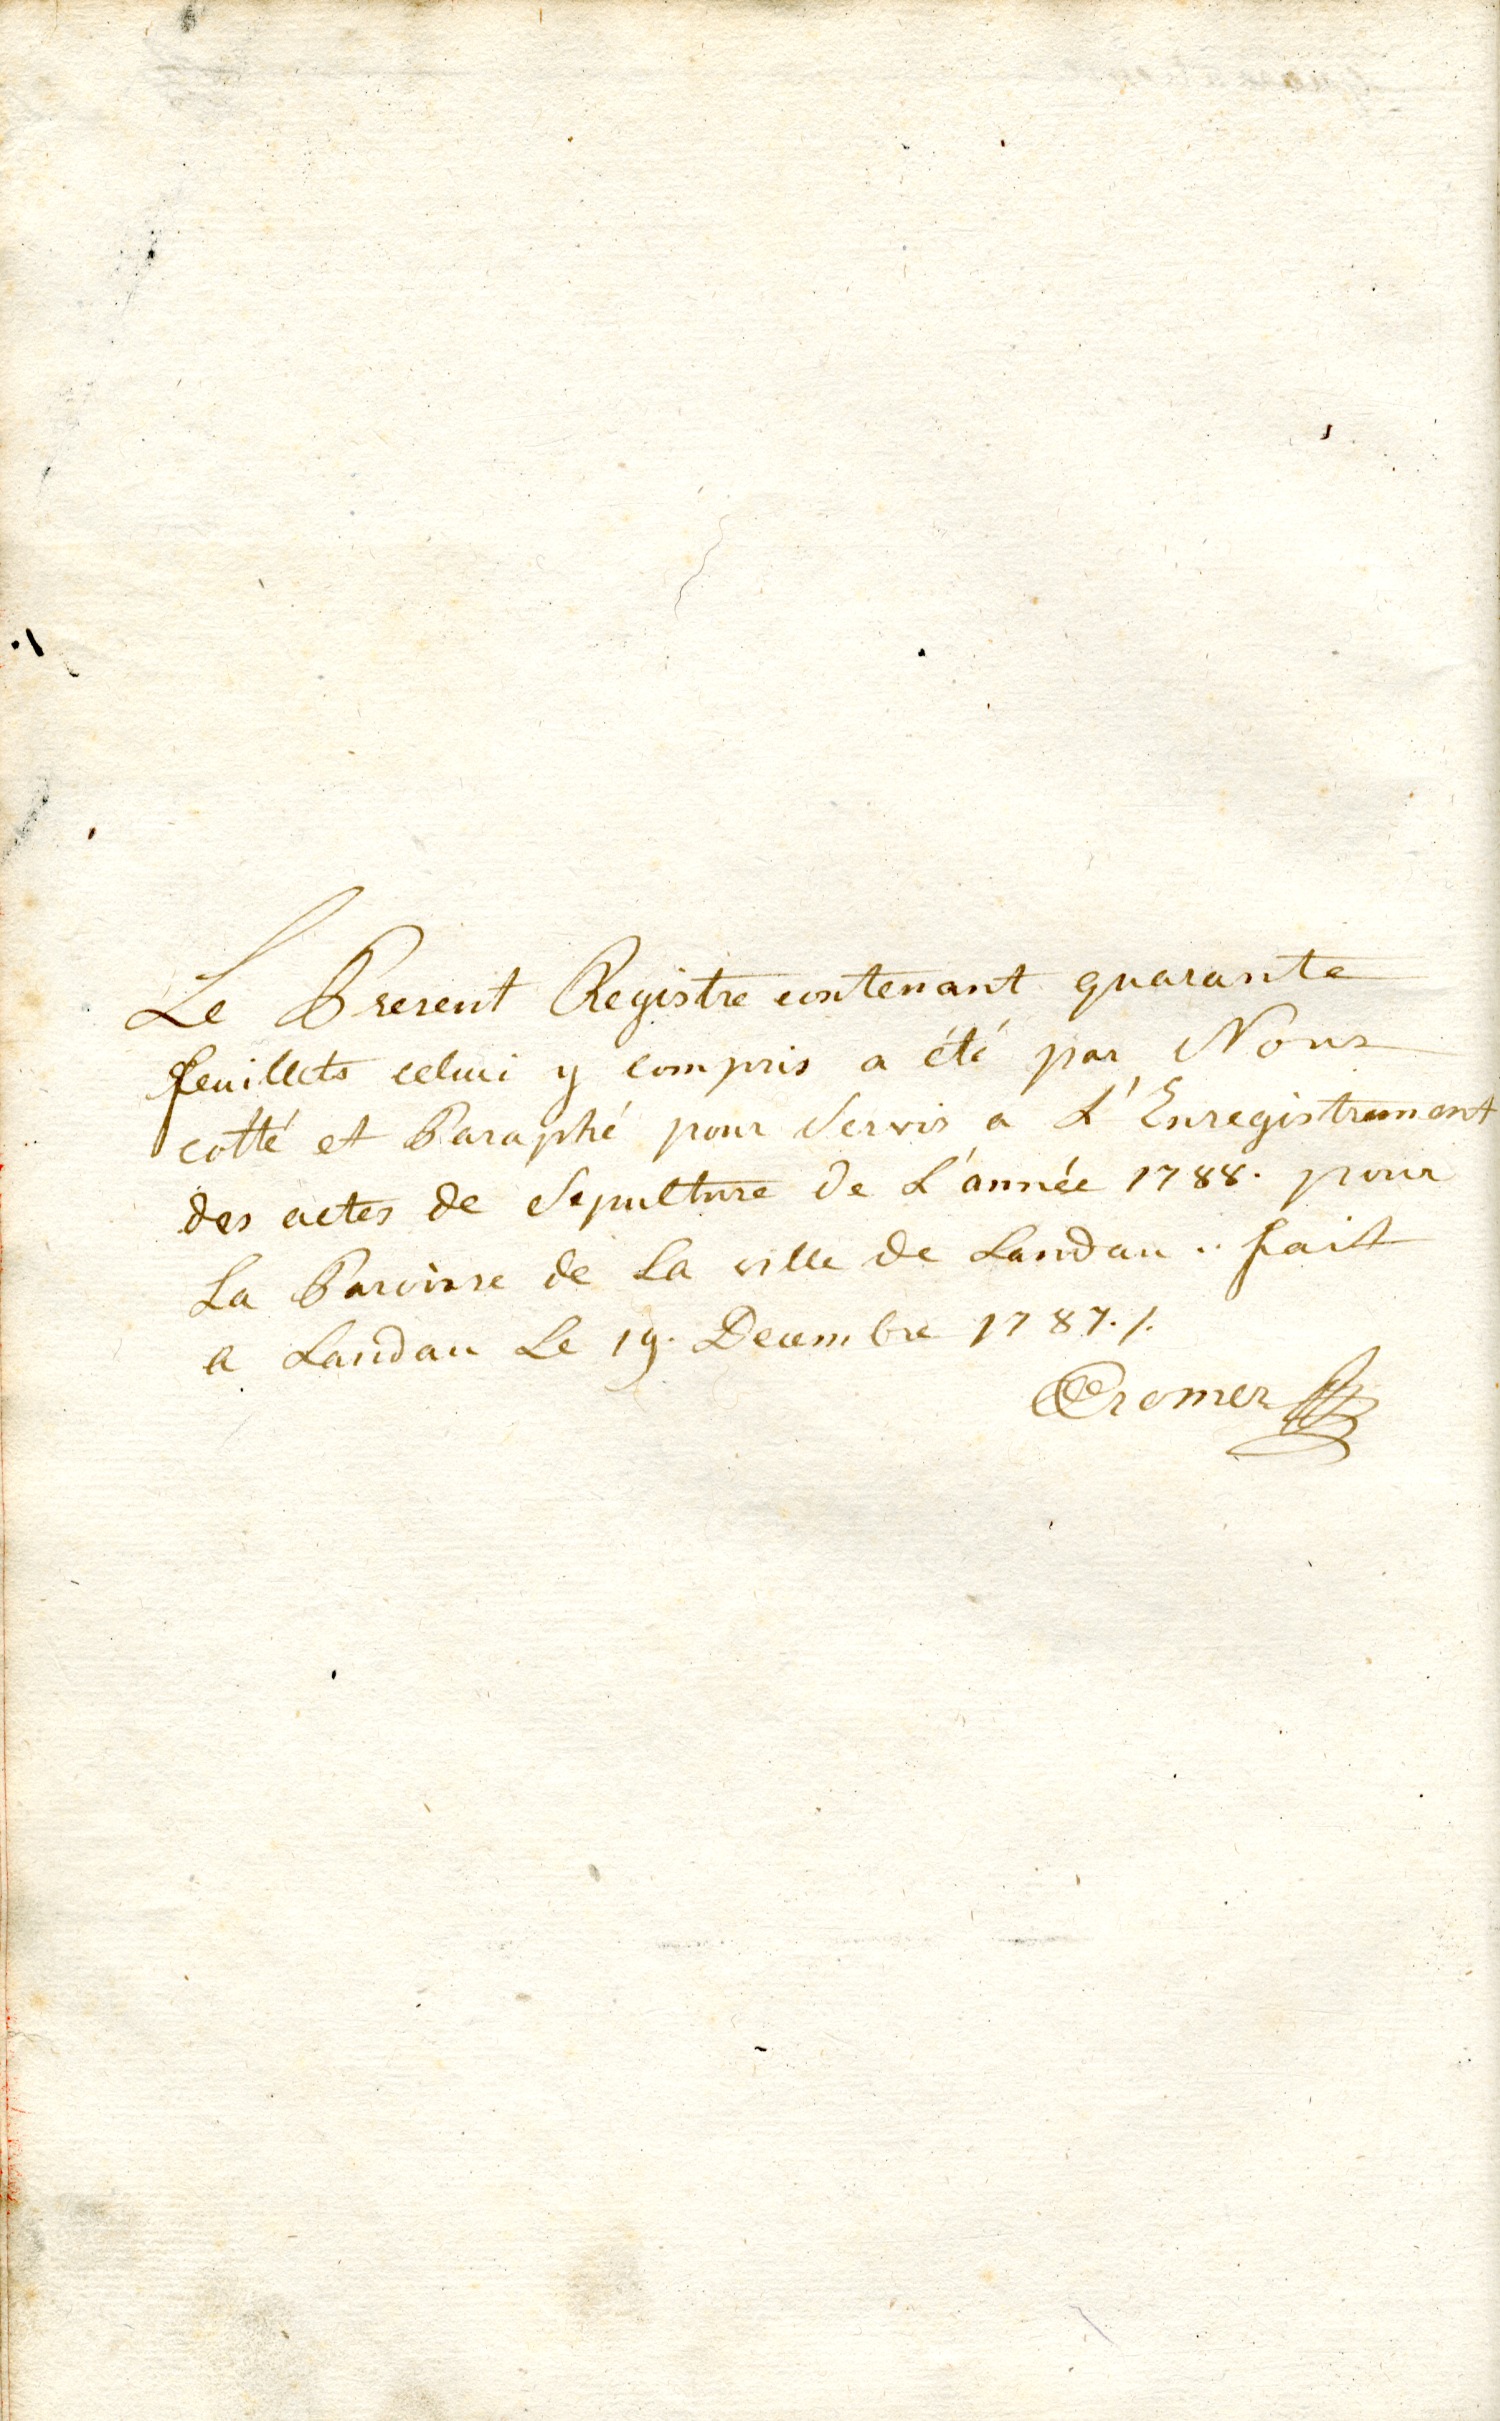 Le Present Registre contenant quarante
feuillets celui y compris a été par Nous
cotté et Paraphé pour Servir a L'Enregistrement
des actes de Sepulture de L'année 1788. pour
La Paroisse de La ville de Landau .. fait
a Landau Le 19. Decembre 1787./.
Cromer